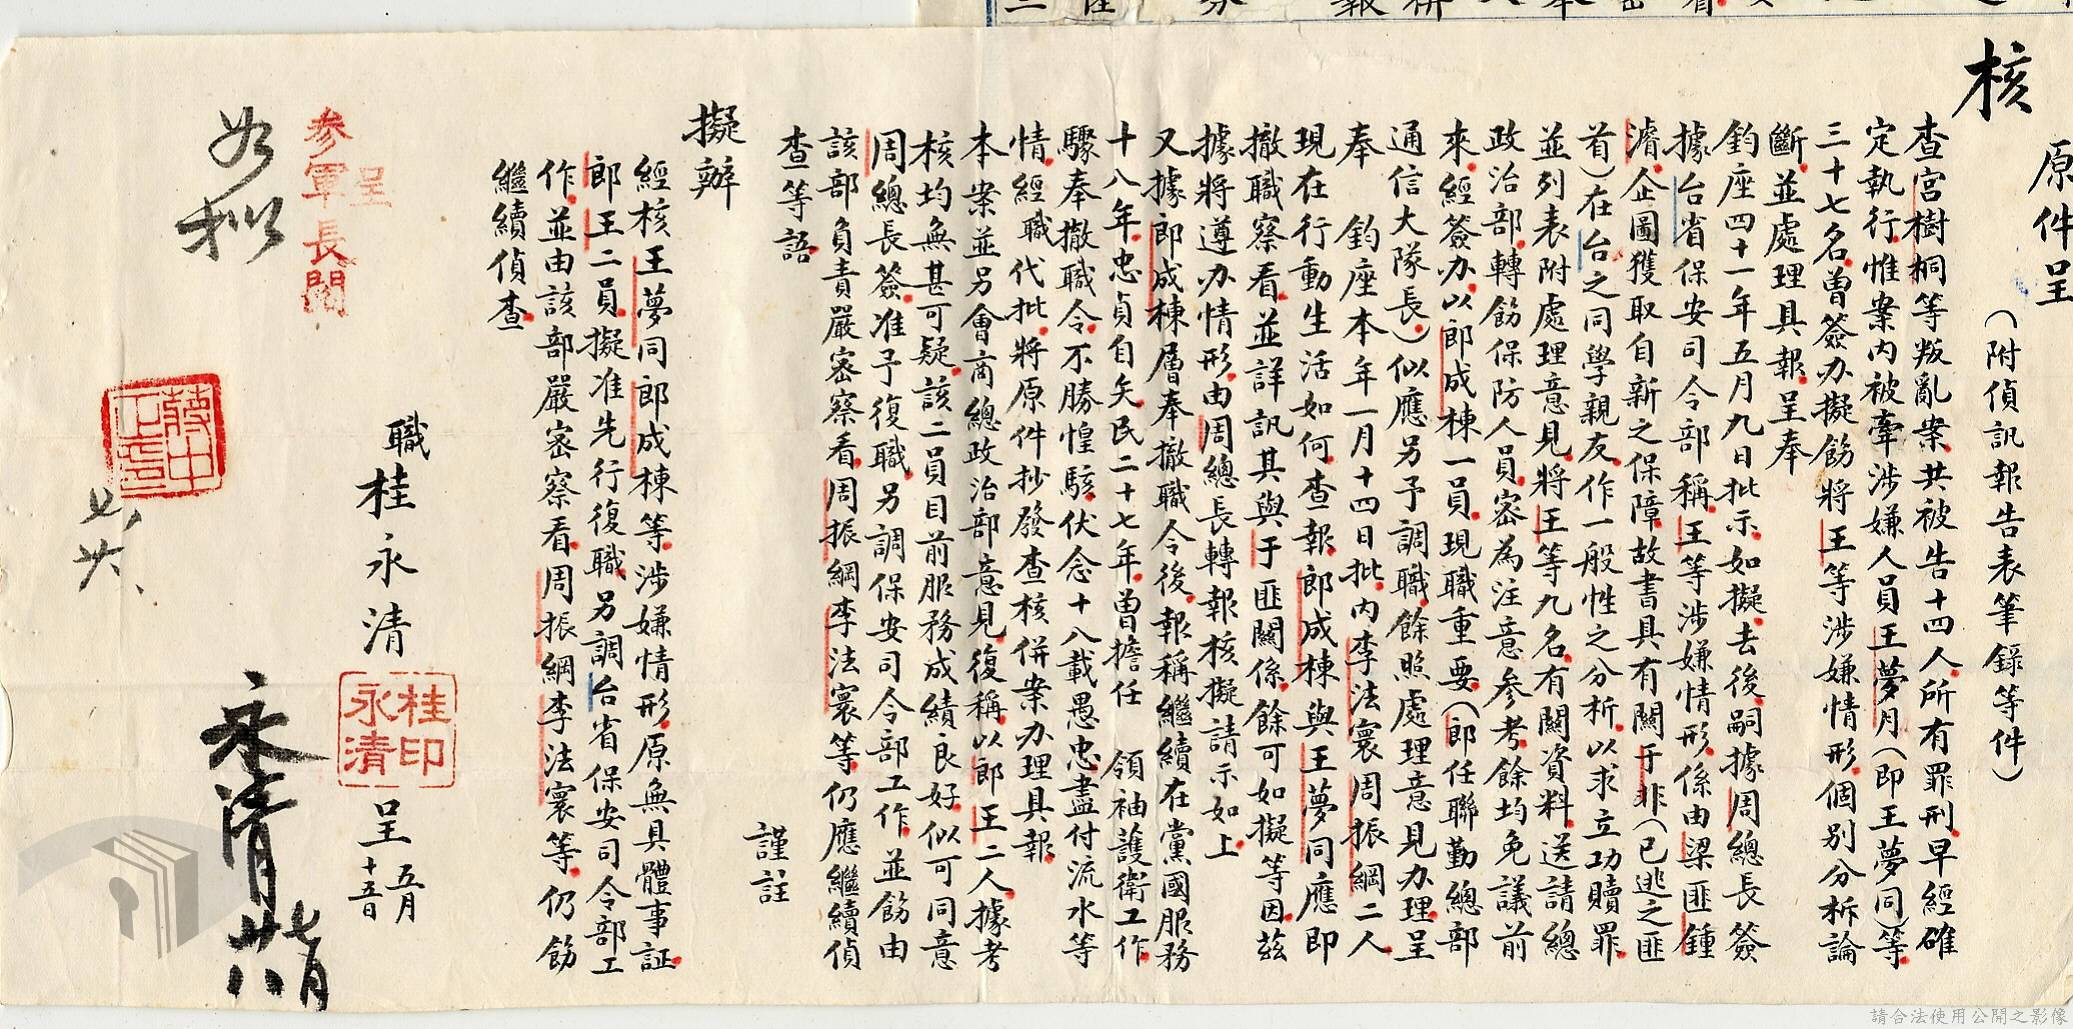 原件呈
核
(附偵訊報告表筆錄等件)
查宮樹桐等叛亂案共被告十四人所有罪刑早經確
定執行惟案內被牽涉嫌人員王夢月(即王夢同)等
三十七名曾簽办擬飭將王等涉嫌情形個別分析論
斷並處理具報呈奉
鈞座四十一年五月九日批示如擬去後嗣據周總長簽
據台省保安司令部稱王等涉嫌情形係由梁匪鍾
濬企圖獲取自新之保障故書具有關于非(已逃之匪
首)在台之同學親友作一般性之分析以求立功贖罪
並列表附處理意見將王等九名有關資料送請總
政治部轉飭保防人員密為注意參考餘均免議前
來經簽办以郎成棟一員現職重要(郎任聯勤總部
通信大隊長)似應另予調職餘照處理意見办理呈
奉 鈞座本年一月十四日批內李法寰周振綱二人
現在行動生活如何查報郎成棟與王夢同應即
撤職察看並詳訊其與于匪關係餘可如擬等因茲
據將遵办情形由周總長轉報核擬請示如上
又據郎成棟層奉撤職令後報稱繼續在黨國服務
十八年忠貞自矢民二十七年曾擔任 領袖護衛工作
驟奉撤職令不勝惶駭伏念十八載愚忠盡付流水等
情經職代批將原件抄發查核併案办理具報
本案並另會商總政治部意見復稱以郎王二人據考
核均無甚可疑該二員目前服務成績良好似可同意
周總長簽准予復職另調保安司令部工作並飭由
該部負責嚴密察看周振綱李法寰等仍應繼續偵
查等語
謹註
擬辦
經核王夢同郎成棟等涉嫌情形原無具體事証
郎王二員擬准先行復職另調台省保安司令部工
作並由該部嚴密察看周振綱李法寰等仍飭
繼續偵查
職桂永清呈
五月
十五日
桂永清印
呈
參軍長閱
如擬
蔣中正印
永清
請合法使用公開之影像